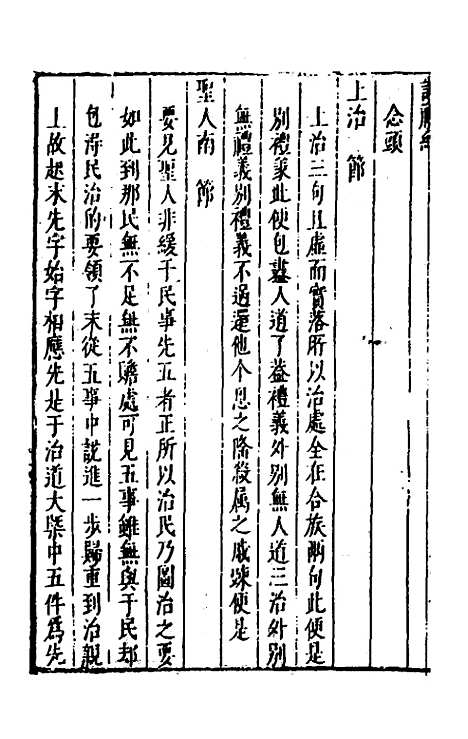 念頭
上治 節
上治三句且虛而實落所以治處全在合族兩句此便是
別禮義此便包盡人道了葢禮義外別無人道三治外別
無禮義別禮義不過還他个恩之隆殺属之戚踈便是
聖人南 節
要見聖人非緩于民事先五者正所以治民乃圖治之要
如此到那民無不足無不贍處可見五事雖無與于民却
包淂民治的要領了末從五事中説進一步歸重到治親
上故起末先字始字相應先是于治道大槩中五件爲先